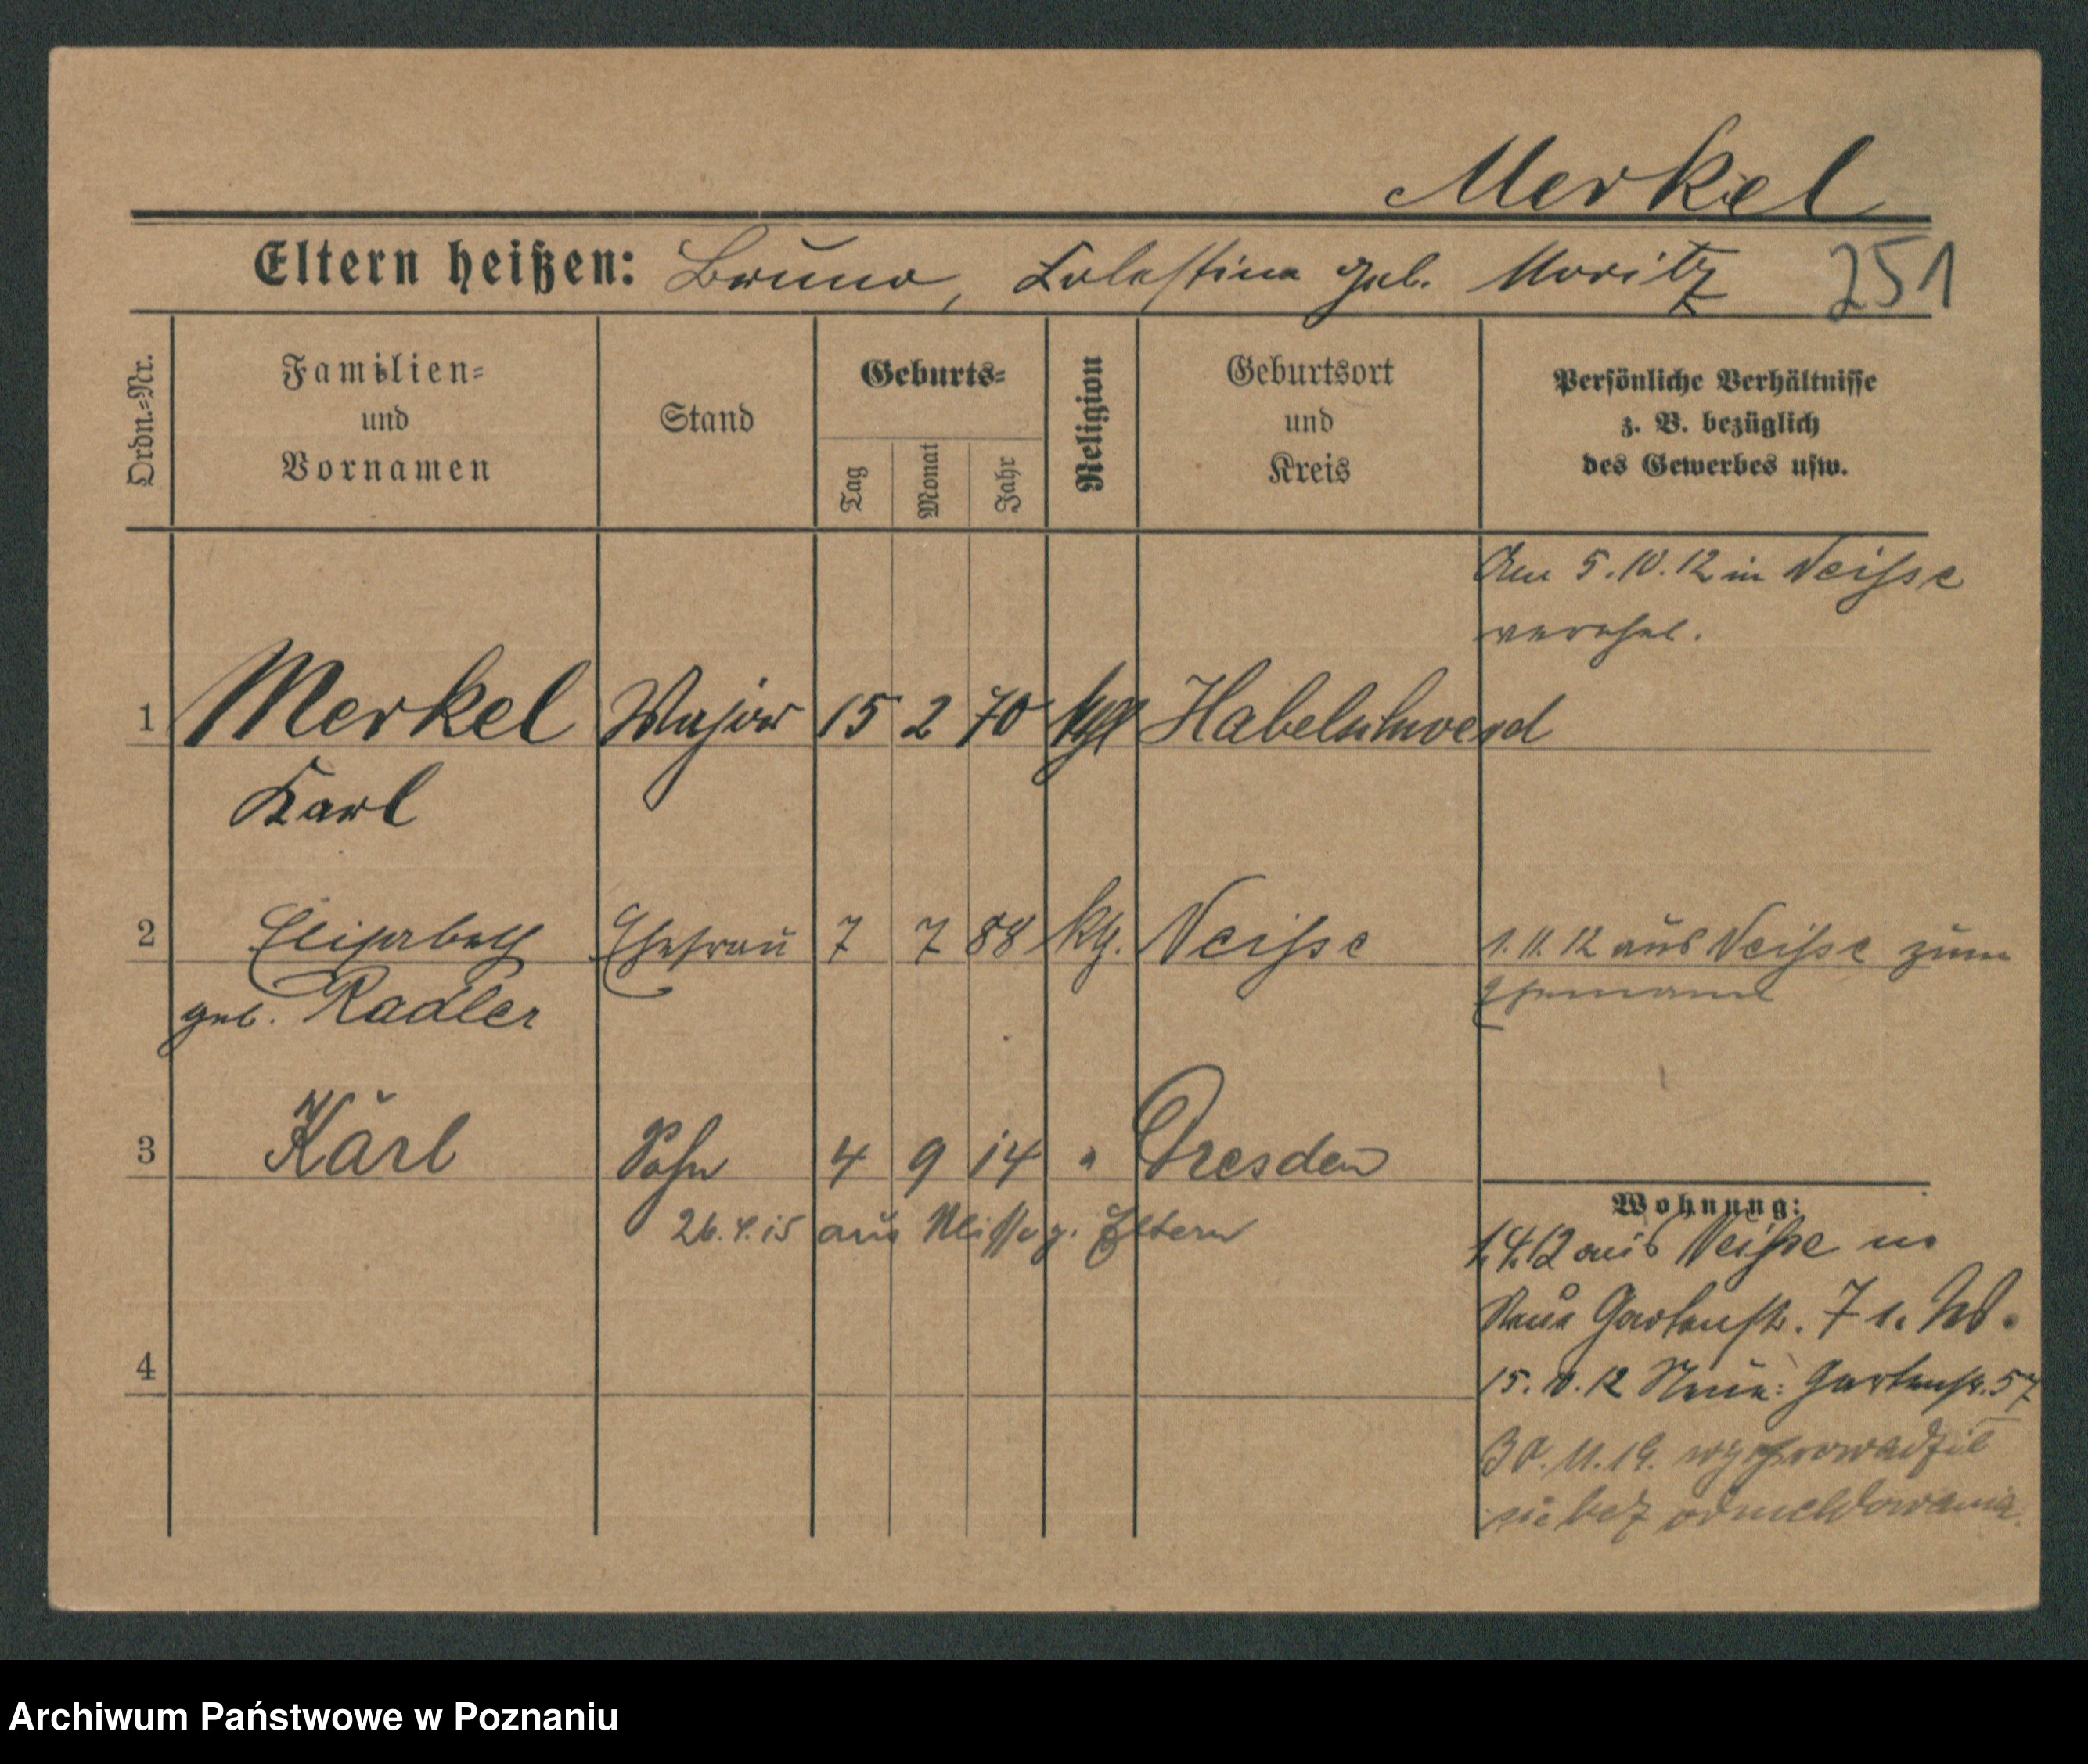 Merkel
Eltern heißen: Bruno, geb. Moritz 251
Ordn.=Nr.
Familien=
und
Vornamen
Stand
Geburts=
Tag
Monat
Jahr
Religion
Geburtsort
und
Kreis
Persönliche Verhältnisse
z. B. bezüglich
des Gewerbes usw.
Am 5.10.12 in Neisse
verehel.
1 Merkel Major 15 2 70 Habelschwerd
Karl
2 Elisabeth Ehefrau 7 7 88 kth. Neisse 1.11.12 aus Neisse zum
geb. Radler Ehemann
3 Karl Sohn 4 9 14 " Dresden
26.4.15 aus Neisse z. Eltern
Wohnung:
1.4.12 aus Neisse
Neue Gartenstr. 7
4
15.10.12 Neue Gartenstr. 57
30.11.19. wyprowadził
się bez odmeldowania.
Archiwum Państwowe w Poznaniu